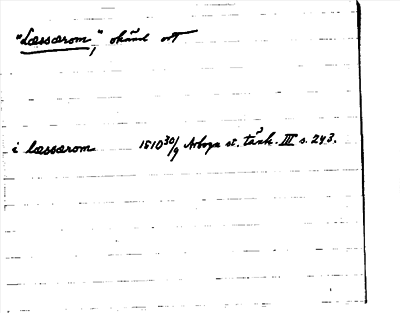 "Læssærom", okänd ort
i læssærom 1510 30/9 Arboga st. tänk. III s. 243.